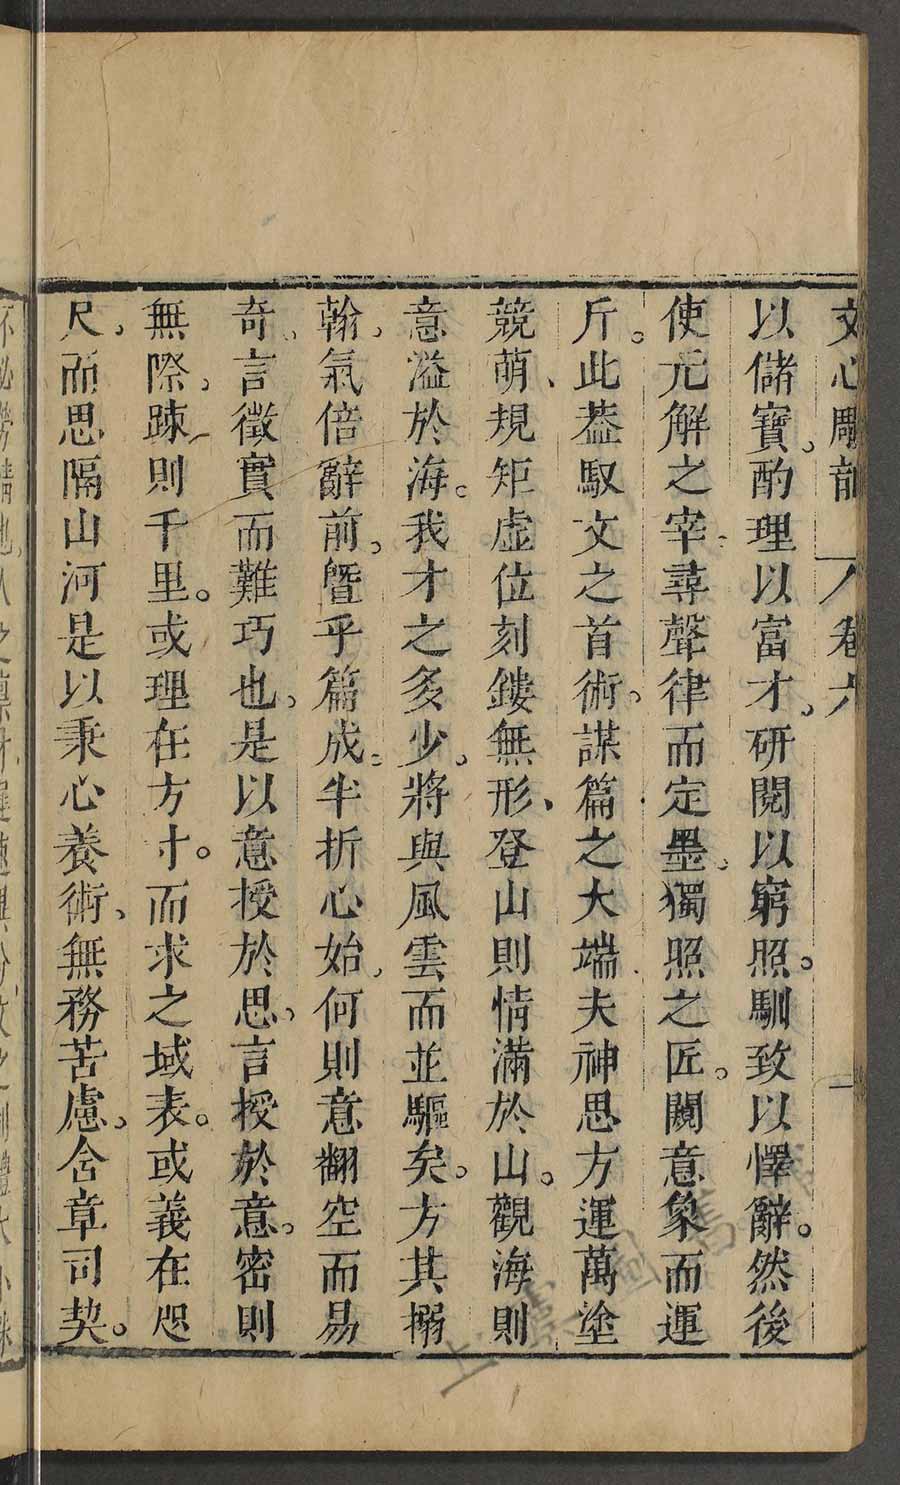 文心雕龍　卷六　一
以儲寶。酌理以富才。研閱以窮照。馴致以懌辭。然後
使元解之宰。尋聲律而定墨。獨照之匠。闚意象而運
斤。此蓋馭文之首術。謀篇之大端。夫神思方運萬塗
競萌、規矩虛位刻鏤無形、登山則情滿於山。觀海則
意溢於海。我才之多少。將與風雲而並驅矣。方其搦
翰。氣倍辭前。曁乎篇成。半折心始。何則意翻空而易
奇。言徵實而難巧也。是以意授於思。言授於意。密則
無際。踈則千里。或理在方寸。而求之域表。或義在咫
尺。而思隔山河是以秉心養術、無務苦慮。含章司契。